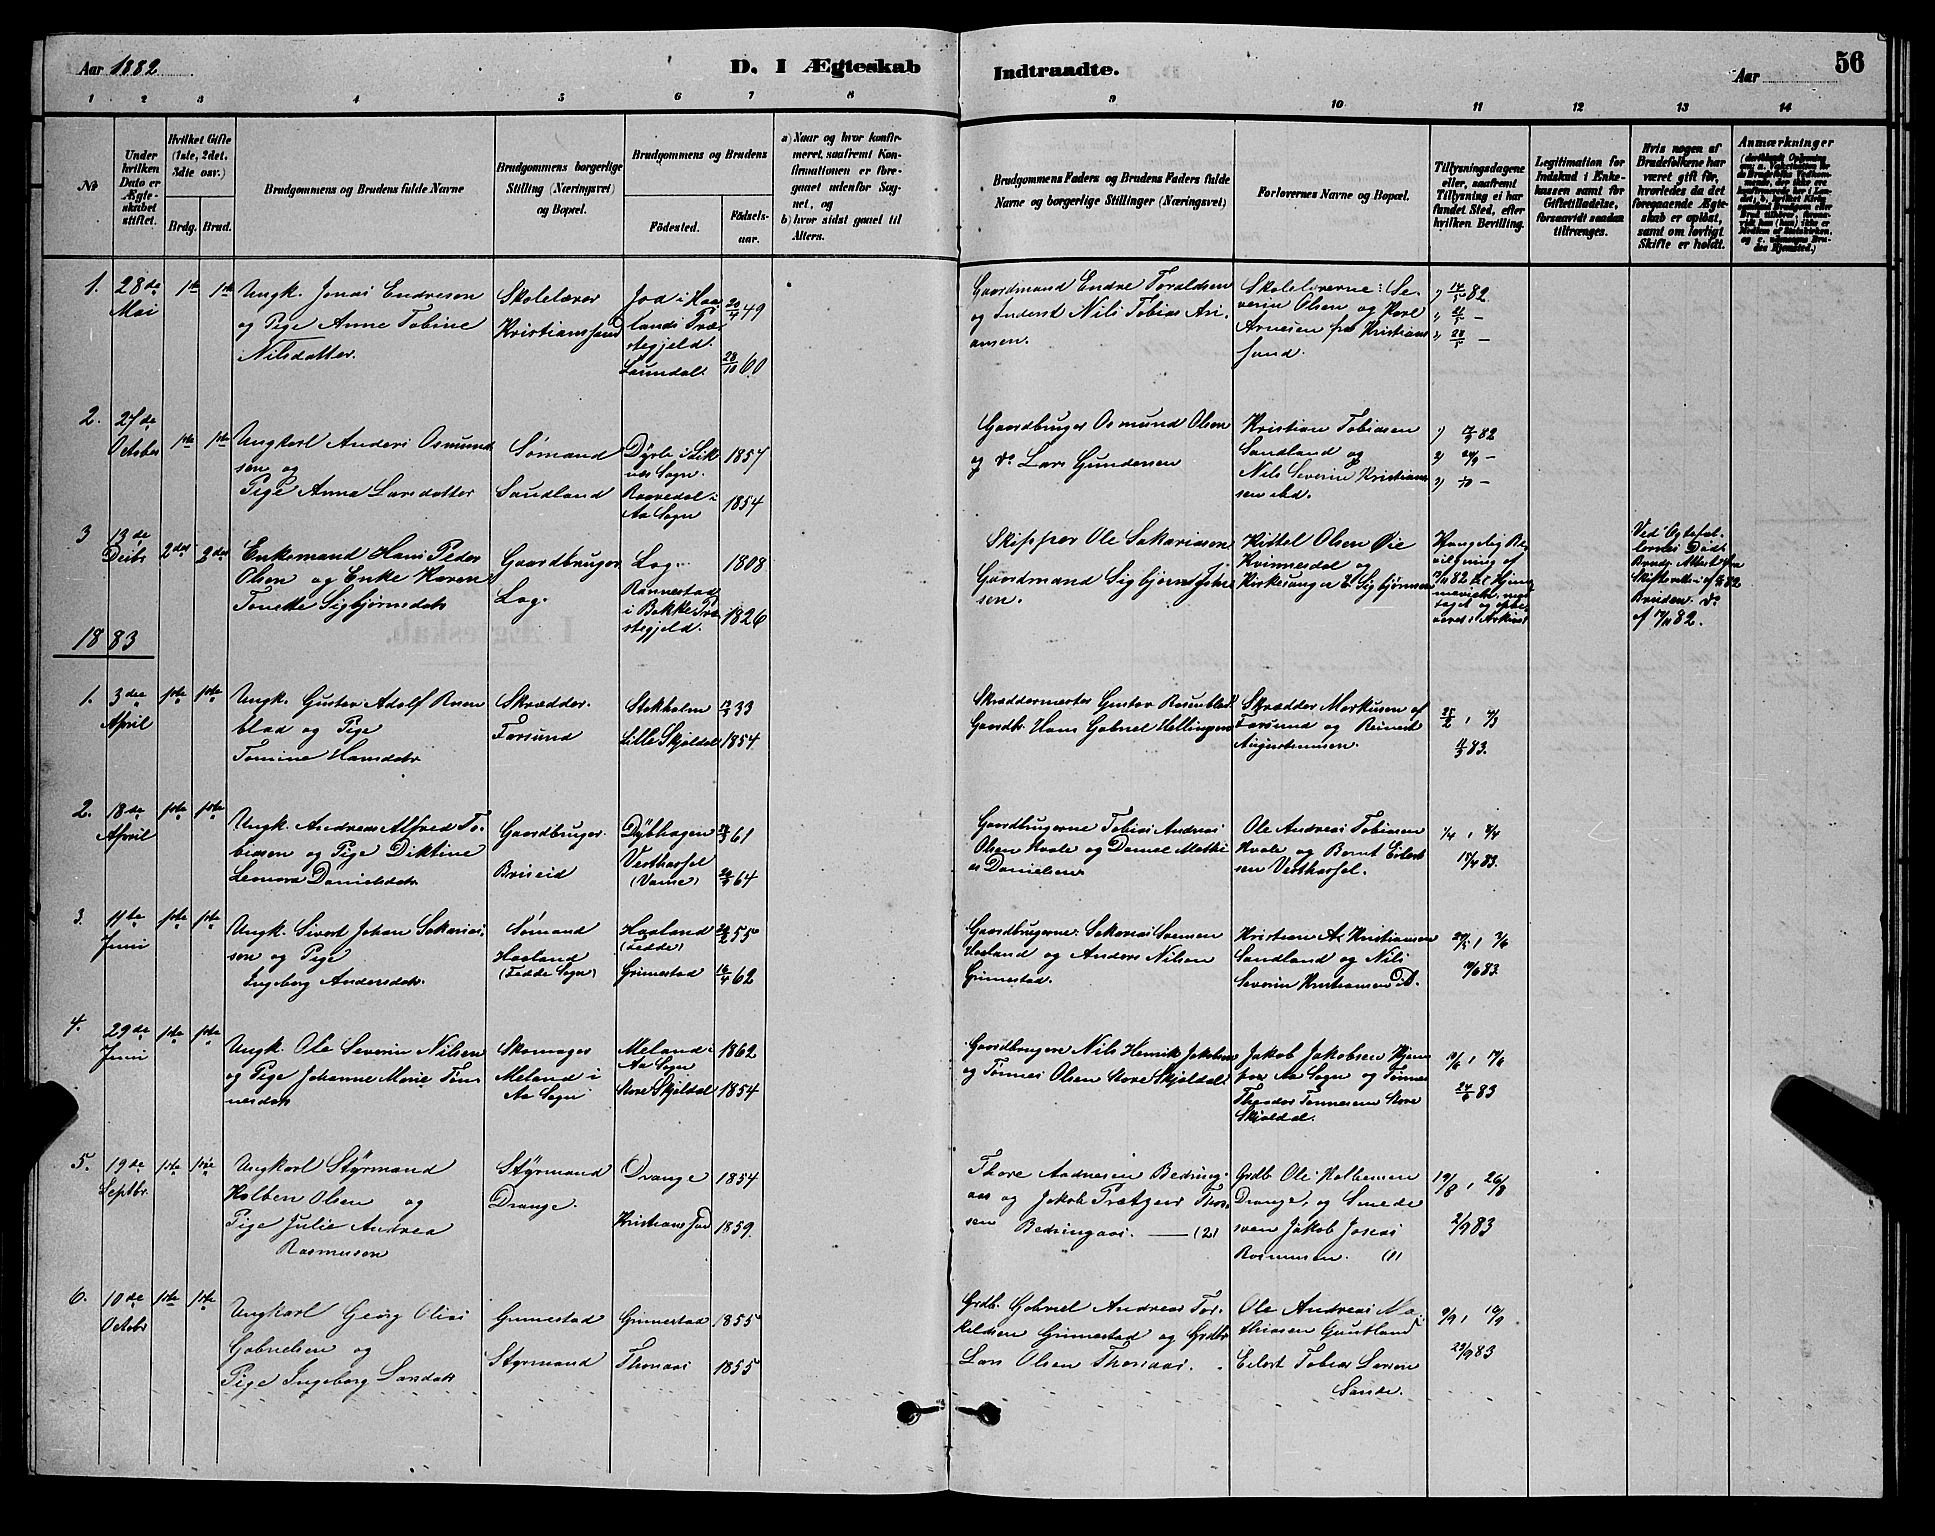 Aar 1882
D. I Ægteskab
Indtraadte.
Aar
56
1 2 3 4 5 6 7 8 9 10 11 12 13 14
No
Under hvilken Dato er Ægteskabet stiftet.
Hvilket Gifte (1ste, 2det, 3die osv.)
Brdg. Brud.
Brudgommens og Brudens fulde Navne
Brudgommens borgerlige Stilling (Næringsvei) og Bopæl.
Brudgommens og Brudens
Fødested.
Fødselsaar.
a) Naar og hvor konfirmeret, saafremt Konfirmationen er foregaaet udenfor Sognet, og
b) hvor sidst gaaet til Alters.
Brudgommens Faders og Brudens Faders fulde Navne og borgerlige Stillinger (Næringsvei)
Forlovernes Navne og Bopæl.
Tillysningsdagene eller, saafremt Tillysning ei har fundet Sted, efter hvilken Bevilling.
Legitimation for Indskud i Enkekassen samt for Giftetilladelse, forsaavidt saadan tiltrænges.
Hvis nogen af Brudefolkene har været gift før, hvorledes da det foregaaende Ægteskab er opløst, samt om lovligt Skifte er holdt.
Anmærkninger
1. 28de Mai 1ste 1ste
Ungk. Jonas Endresen
og Pige Anne Tobine
Nilsdatter
Skolelærer
Kristianssand
Jod i Haa
lands Præ
stegjeld.
Laundal.
20/4 49
28/10 60
Gaardmand Endre Toraldsen
og Inderst Nils Tobias Ari
ansen.
Skolelærerne: Se
verin Olsen og Karl
Arnesen fra Kristians
sand.
14/5 82
21/5 -
28/5 -
2. 27de October 1ste 1ste
Ungkarl Anders Osmund
sen og
Pige Anna Larsdatter
Sømand
Sandland
Dyrli i Lik
nes Sogn.
Raavedal i
Aa Sogn
1857
1854
Gaardbruger Osmund Olsen
og do Lars Gundersen
Kristian Tobiasen
Sandland og
Nils Severin Kristian
sen ibd.
17/9 82
24/9 -
1/10 -
3 13de Decbr 2det 2det
Enkemand Hans Peder
Olsen og Enke Karen
Tomette Sigbjørnsdatr
Gaardbruger
Log.
Log.
Rannestad
i Bakke Præ
stegjeld.
1808
1826
Skipper Ole Sakariasen
Gaardmand Sigbjørn Johan
sen.
Kittel Olsen Øie
Kvinnesdal og
Kirkesanger E. Sigbjørnsen
Kongelig Be
vilgning af
82 til Hjem
mevielse, mod
taget og opbe
varet i Arkivet
Ved Ægtefæl
lernes Død.
Brudg. Attest fra
Skifteretten af 82
Bruden do
af 7/11 82.
1883
1. 3die April 1ste 1ste
Ungk. Gustav Adolf Rosen
blad og Pige
Tomine Hansdatr
Skrædder.
Farsund
Stokholm
Lille Skjoldal
33
1854
Skræddermester Gustav Rosenblad
Gaardb. Hans Gabriel Hellingsen
Skrædder Markusen af
Farsund og Reinert
Augustinussen.
25/2, 4/3
11/3 83.
2. 18de April 1ste 1ste
Ungk. Andreas Alfred To
biasen og Pige Diktine
Leonora Danielsdatr
Gaardbruger
Briseid
Dybhagen
Vesthassel
(Vanse)
61
64
Gaardbrugerne Tobias Andreas
Olsen Hvale og Daniel Mathi
as Danielsen
Ole Andreas Tobiasen
Hvale og Bernt Eilert
sen Vesthassel.
1/4, 8/4
15/4 83.
3. 11te Juni 1ste 1ste
Ungk. Sivert Johan Sakarias
sen og Pige
Ingeborg Andersdatr.
Sømand
Haaland
(Fedde Sogn)
Haaland
(Fedde)
Grimestad
55
16/4 62
Gaardbrugerne Sakarias Svensen
Haaland og Anders Nilsen
Grimestad.
Kristian A. Kristiansen
Sandland og Nils
Severin Kristiansen
27/5, 3/6
10/6 83.
4. 29de Juni 1ste 1ste
Ungk. Ole Severin Nilsen
og Pige Johanne Marie Tøn
nesdatr
Skomager
Meland i
Aa Sogn
Meland
Aa Sogn
Store Skjoldal
1862
1854
Gaardbrugere Nils Henrik Jakobsen
og Tønnes Olsen Store Skjoldal
Jakob Jakobsen
Aa Sogn og Tønnes
Theodor Tønnessen Store
Skjoldal.
10/6, 17/6
24/6 83
5. 19de Septbr. 1ste 1ste
Ungkarl Styrmand
Halben Olsen og
Pige Julie Andrea
Rasmusen
Styrmand
Drange.
Drange
Kristianssand
1854
1859.
Thore Aadnesen Bedring
aas og Jakob Thor
sen Bedringaas. — (2)
Grdb. Ole Halbensen
Drange, og Smede
sven Jakob Josias
Rasmusen. (1)
19/8, 26/8
2/9 83
6. 10de Octobr 1ste 1ste
Ungkarl Georg Olias
Gabrielsen og
Pige Ingeborg Larsdatr
Grimestad
Styrmand
Grimestad
Thonaas
1855
1855
Grdb. Gabriel Andreas Tor
kildsen Grimestad og Grdbr
Lars Olsen Thonaas.
Ole Andreas Ma
thiasen Gautland
Eilert Tobias Larsen
Sande.
9/9, 16/9
23/9 83